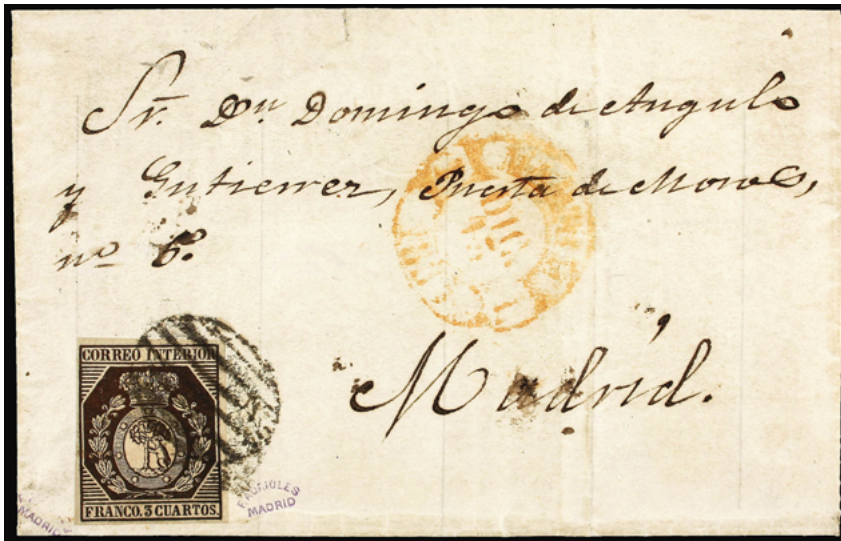 Sr. Dn Domingo de Angulo
y Gutierrez, Puerta de Moros,
no 6.
Madrid.
CORREO INTERIOR
FRANCO. 3 CUARTOS.
MADRID
MADRID